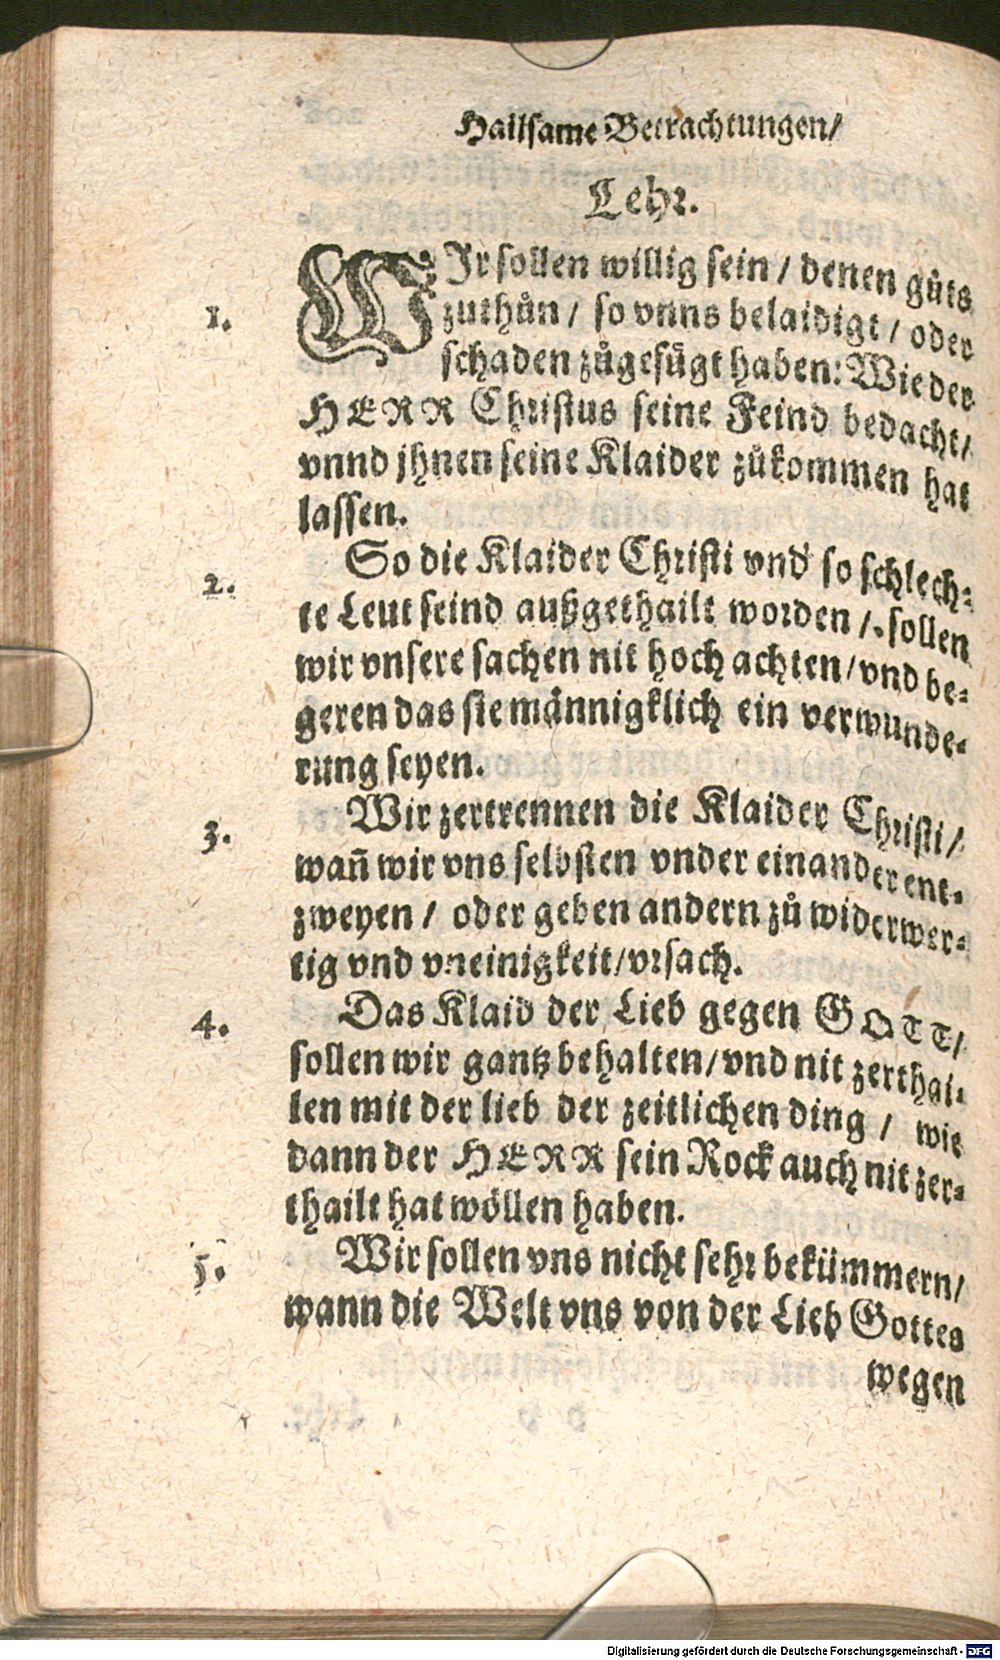 Hailsame Betrachtungen/
Lehr.
1. WIr sollen willig sein / denen gůts
zuthůn / so vnns belaidigt / oder
schaden zůgefůgt haben: Wie der
HERR Christus seine Feind bedacht/
vnnd jhnen seine Klaider zůkommen hat
lassen.
2. So die Klaider Christi vnd so schlech-
te Leut seind außgethailt worden / sollen
wir vnsere sachen nit hoch achten / vnd be-
geren das sie männigklich ein verwunde-
rung seyen.
3. Wir zertrennen die Klaider Christi/
wañ wir vns selbsten vnder einander ent-
zweyen / oder geben andern zů widerwer-
tig vnd vneinigkeit/vrsach.
4. Das Klaid der Lieb gegen GOTT/
sollen wir gantz behalten/vnd nit zerthai-
len mit der lieb der zeitlichen ding / wie
dann der HERR sein Rock auch nit zer-
thailt hat wöllen haben.
5. Wir sollen vns nicht sehr bekümmern/
wann die Welt vns von der Lieb Gottes
wegen
Digitalisierung gefördert durch die Deutsche Forschungsgemeinschaft - DFG